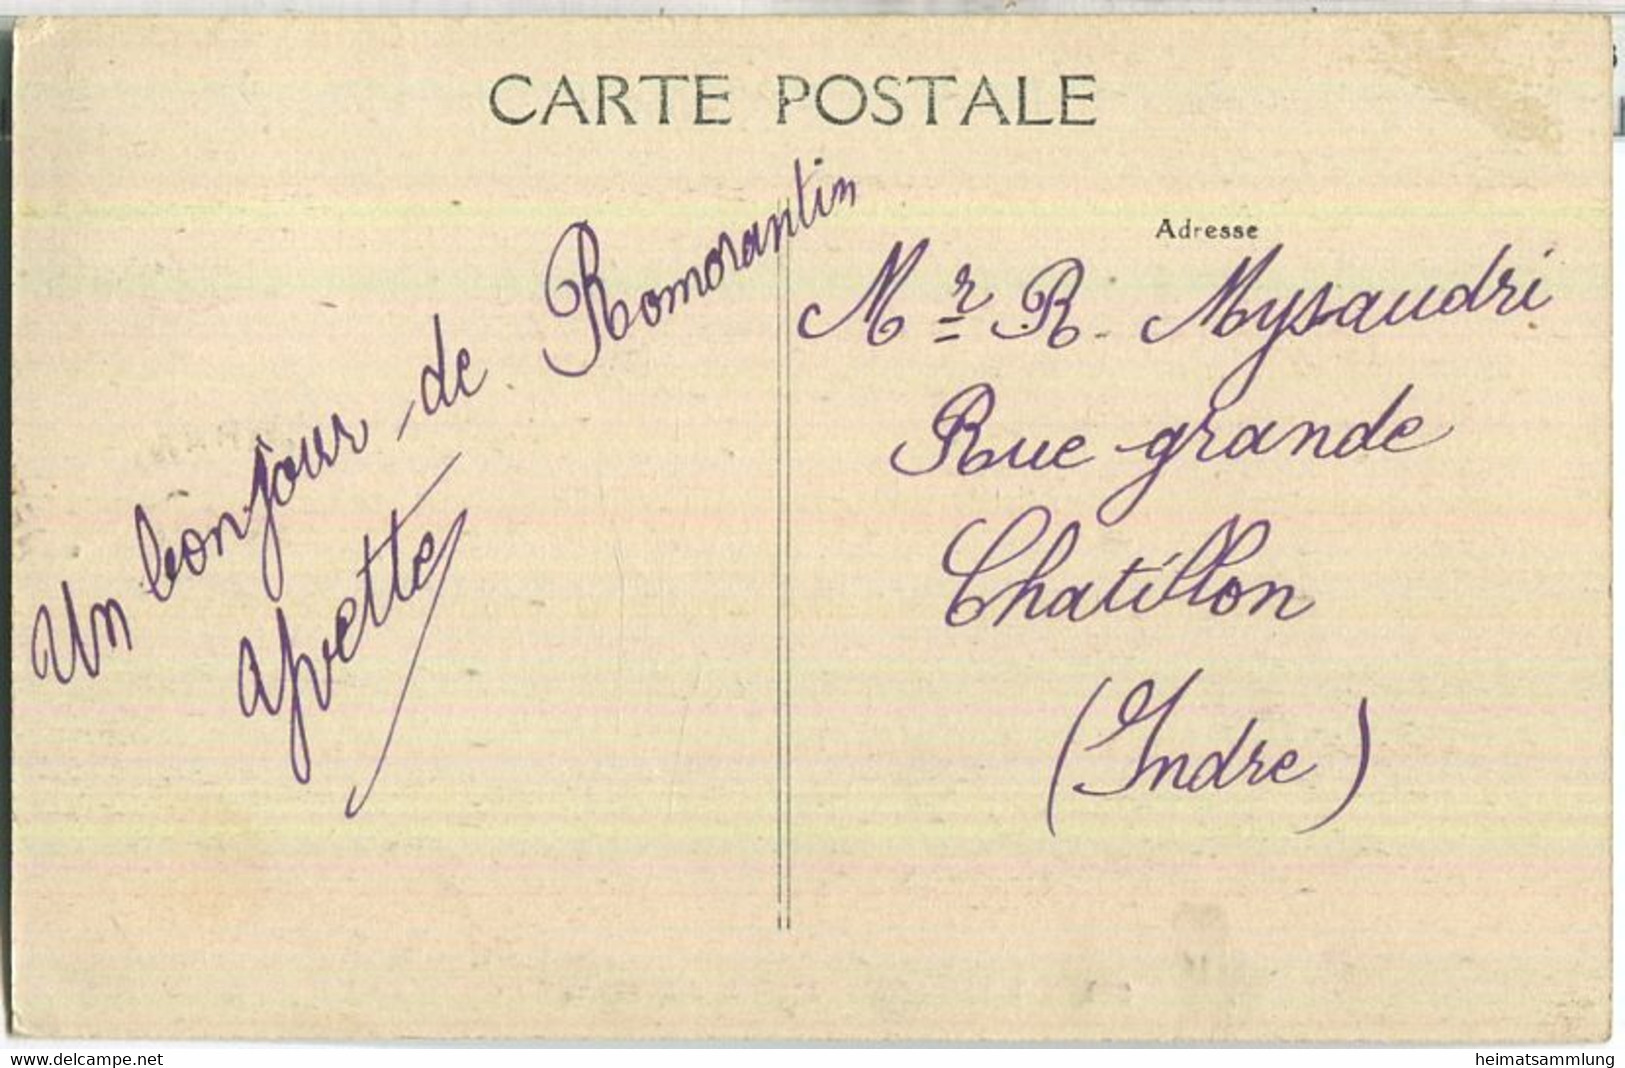 CARTE POSTALE
Un bonjour de Romorantin
Yvette
Adresse
Mr R. Mysaudri
Rue grande
Chatillon
(Indre)
www.delcampe.net
heimatsammlung